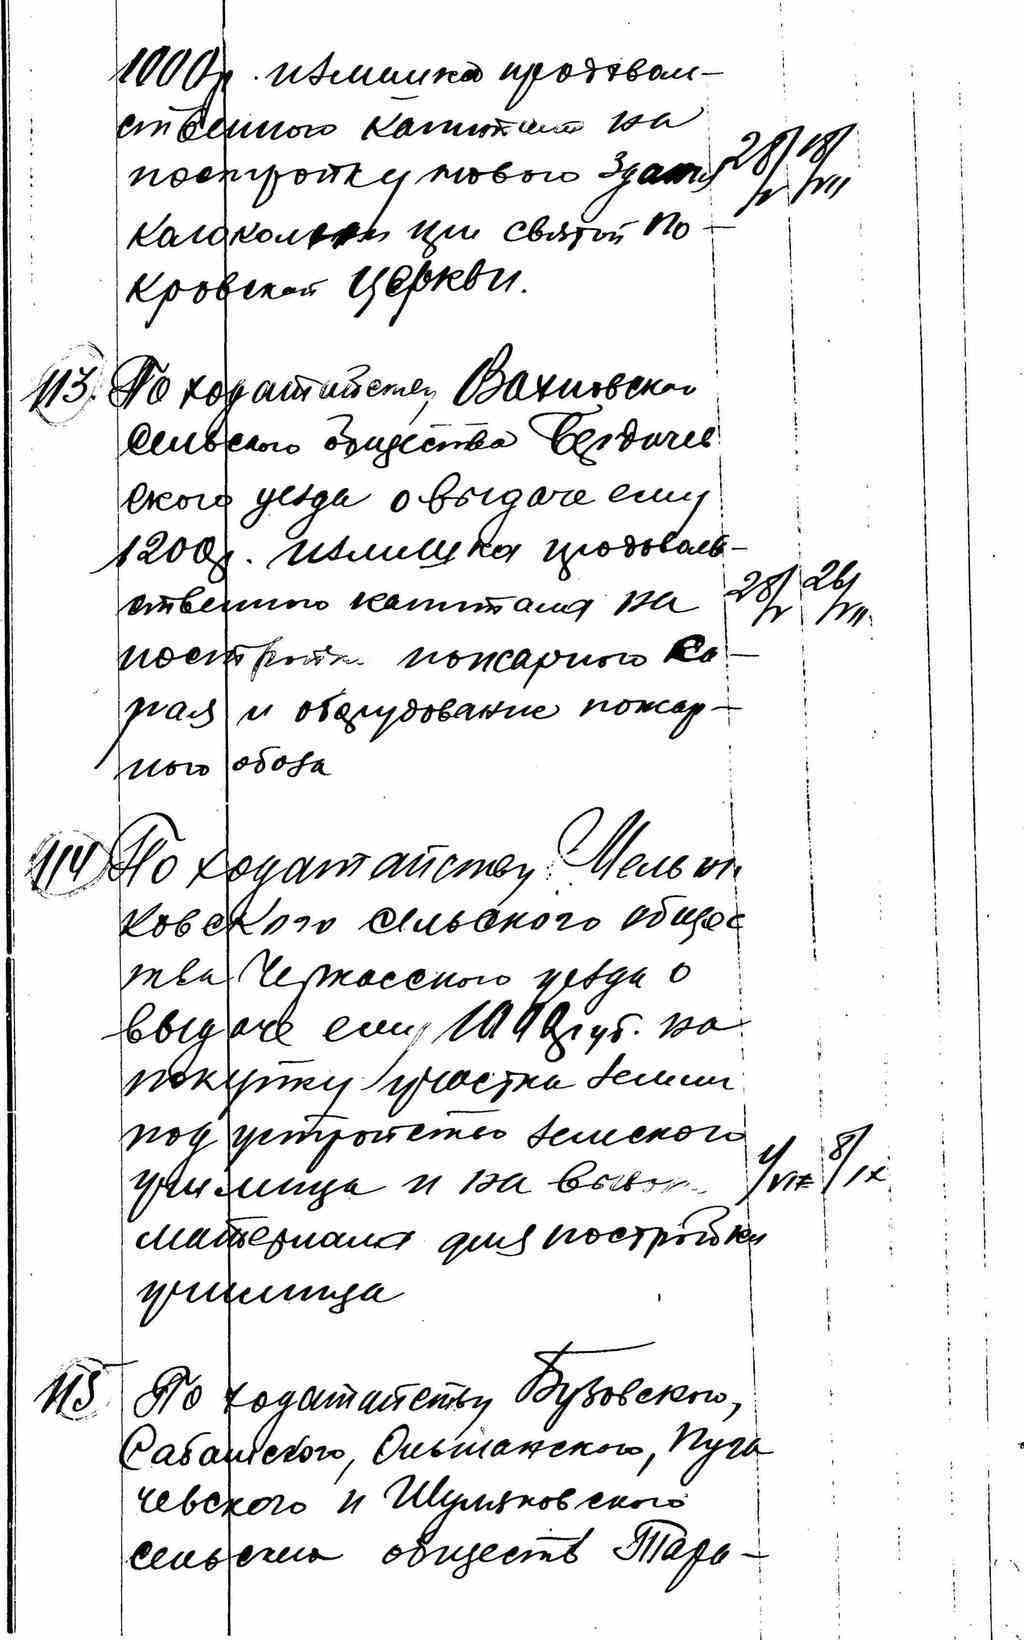 1000р. излишка продоволь-
ственного капитала на
постройку нового здания
колокольни при святой По-
кровской Церкви.
28/V 18/VII
113. По ходатайству Вахновского
сельского общества Бердичев
ского уезда о выдаче ему
1200р. излишка продоволь-
ственного капитала на
постройку пожарного са-
рая и оборудование пожар-
ного обоза
28/V 26/VII
114 По ходатайству Мельни
ковского сельского общес
тва Черкасского уезда о
выдаче ему 1000руб. на
покупку участка земли
под устройство земского
училища и на
материала для постройки
училища
4/VII 8/IX
115 По ходатайству Бузовского,
Сабашского, Ольшанского, Пуга
чевского и Шуляковского
сельских обществ Тара-